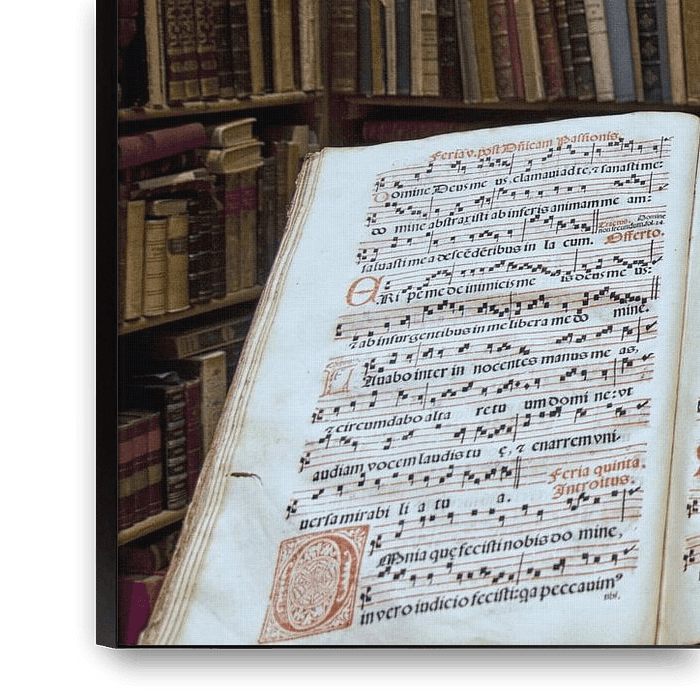 Feria v. post Dñicam Passionis.
Domine Deus me us, clamavi ad te, ⁊ sanasti me:
do mine abstraxisti ab inferis animam me am:
Tractus. Domine
non secundum. fol. 24.
salvasti me a descēdētibus in la cum. Offerto.
ERi pe me de inimicis me is deus me us:
⁊ ab insurgentibus in me libera me do mine.
LAuabo inter in nocentes manus me as,
⁊ circumdabo alta re tu um domi ne: vt
audiam vocem laudis tu ę, ⁊ enarrem vni-
uersa mirabi li a tu a. Feria quinta.
Introitus.
OMnia quę fecisti nobis do mine,
in vero iudicio fecisti: ga peccauimꝰ
tibi,